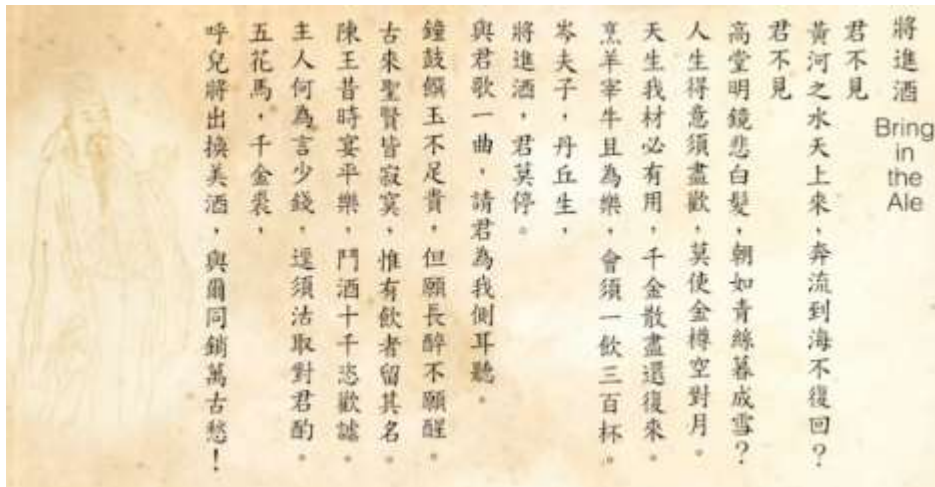 將進酒
Bring
in
the
Ale
君不見
黃河之水天上來,奔流到海不復回?
君不見
高堂明鏡悲白髮,朝如青絲暮成雪?
人生得意須盡歡,莫使金樽空對月。
天生我材必有用,千金散盡還復來。
烹羊宰牛且為樂,會須一飲三百杯。
岑夫子,丹丘生,
將進酒,君莫停。
與君歌一曲,請君為我側耳聽。
鐘鼓饌玉不足貴,但願長醉不願醒。
古來聖賢皆寂寞,惟有飲者留其名。
陳王昔時宴平樂,鬥酒十千恣歡謔。
主人何為言少錢,逕須沽取對君酌。
五花馬,千金裘,
呼兒將出換美酒,與爾同銷萬古愁!